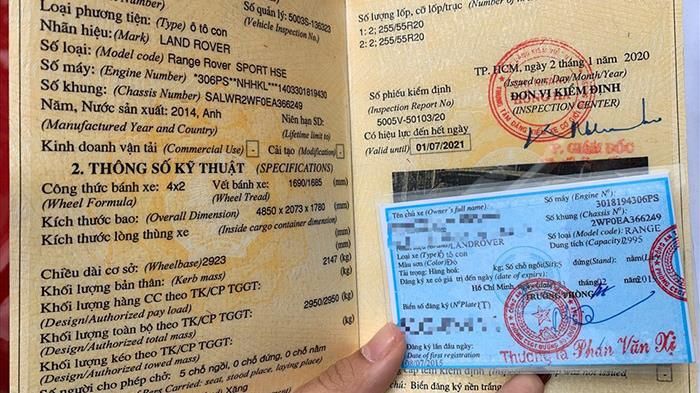 Loại phương tiện: (Type) ô tô con
(Vehicle Inspection No)
Số quản lý: 5003S-136323
Nhãn hiệu: (Mark) LAND ROVER
Số loại: (Model code) Range Rover SPORT HSE
Số máy: (Engine Number) *306PS**NHHKL***1403301819430
Số khung: (Chassis Number) SALWR2WF0EA366249
Năm, Nước sản xuất: 2014, Anh
Niên hạn SD:
(Manufactured Year and Country)
(Lifetime limit to)
Kinh doanh vận tải (Commercial Use) -
Cải tạo (Modification) -
2. THÔNG SỐ KỸ THUẬT (SPECIFICATIONS)
Công thức bánh xe: 4x2
Vết bánh xe: 1690/1685 (mm)
(Wheel Formula)
(Wheel Tread)
Kích thước bao: (Overall Dimension) 4850 x 2073 x 1780 (mm)
Kích thước lòng thùng xe
(mm)
(Inside cargo container dimension)
Chiều dài cơ sở: (Wheelbase) 2923 (mm)
Khối lượng bản thân: (Kerb mass) 2147 (kg)
Khối lượng hàng CC theo TK/CP TGGT:
(Design/Authorized pay load) (kg)
Khối lượng toàn bộ theo TK/CP TGGT:
2950/2950 (kg)
(Design/Authorized total mass)
Khối lượng kéo theo TK/CP TGGT:
(Design/Authorized towed mass) (kg)
Số người cho phép chở: 5 chỗ ngồi, 0 chỗ đứng, 0 chỗ nằm
Số lượng lốp, cỡ lốp/trục
1: 2; 255/55R20
2: 2; 255/55R20
TP. HCM, ngày 2 tháng 1 năm 2020
(Issued on: Day/Month/Year)
Số phiếu kiểm định
ĐƠN VỊ KIỂM ĐỊNH
(Inspection Report No)
(INSPECTION CENTER)
5005V-50103/20
Có hiệu lực đến hết ngày
(Valid until) 01/07/2021
P. GIÁM ĐỐC
Tên chủ xe (Owner's full name):
Số máy (Engine Nº):
3018194306PS
Số khung (Chassis Nº):
2WF0EA366249
LANDROVER
Số loại (Model code): RANGE
Loại xe (Type) Ô tô con
Dung tích (Capacity) 2995
Màu sơn (Color) Đỏ
Tải trọng: Hàng hoá: kg; Số chỗ ngồi (Sit) 5 đứng (Stand)
Đăng ký xe có giá trị đến ngày (date of expiry)
TRƯỞNG PHÒNG
Biển số đăng ký (Nº Plate) (T)
Đăng ký lần đầu ngày
Date of first registration
Thượng tá Phan Văn
chú: Biển đăng ký nền trắng